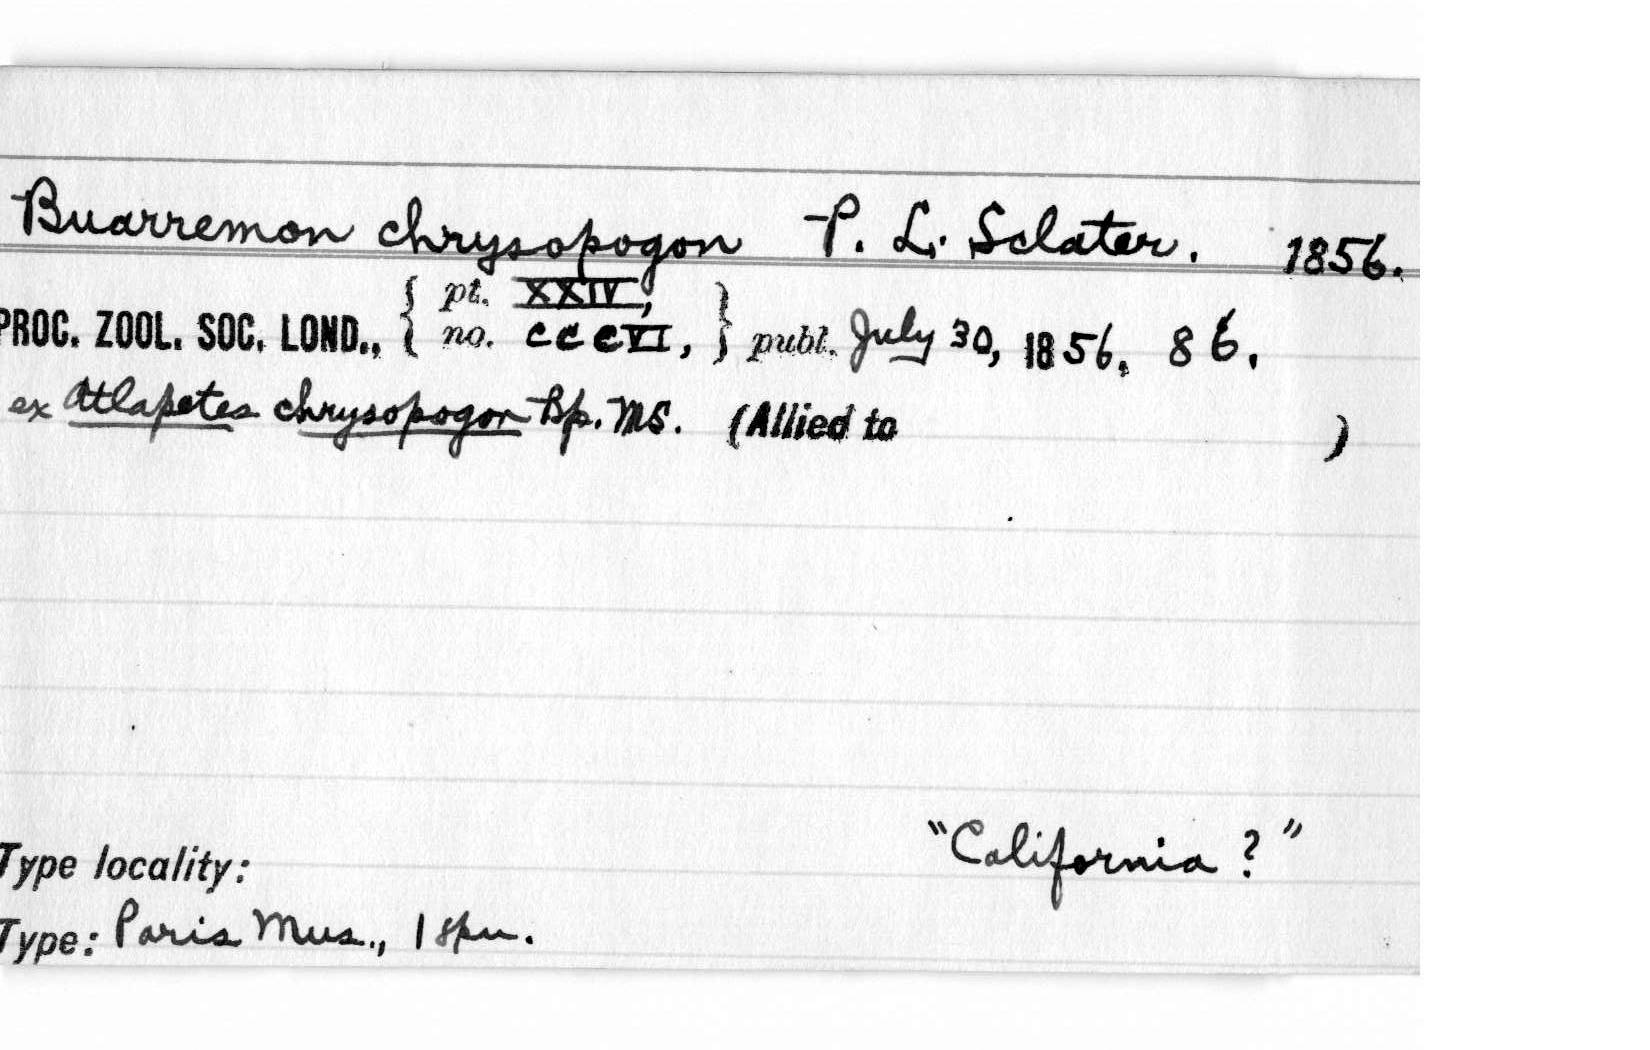 Buarremon chrysopogon P. L. Sclater. 1856.
PROC. ZOOL. SOC. LOND., { pt. XXIV, no. CCCVI, } publ. July 30, 1856, 86.
ex Atlapetes chrysopogon Bp. MS. (Allied to )
"California ?"
Type locality:
Type: Paris Mus., 1 spn.